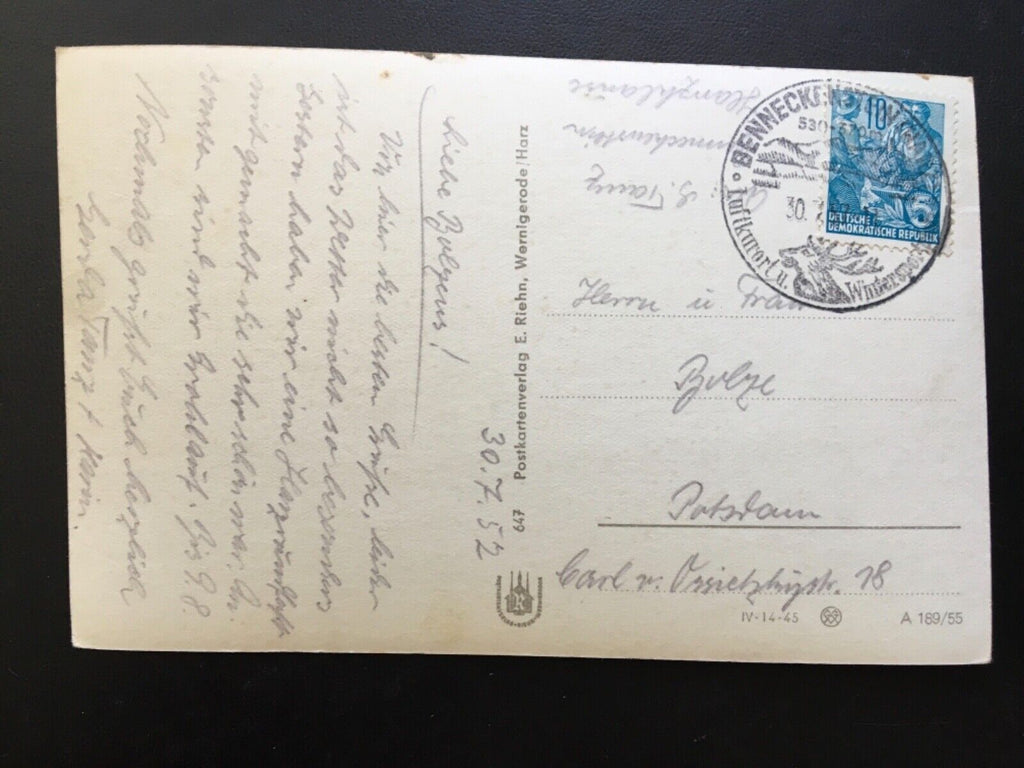 30.7.57
Liebe Bolzens!
Von hier die besten Grüße, leider
ist das Wetter nicht so besonders
Gestern haben wir eine Harzrundfahrt
mitgemacht die sehr schön war. In
sind wir Bis 9.8.
Nochmals grüßt Euch herzlich
Gerda Tanz +
647 Postkartenverlag E. Riehn, Wernigerode/Harz
G. Tanz
BENNECKENSTEIN
530-
30.7.
Luftkurort u. Wintersport
10
5
DEUTSCHE
DEMOKRATISCHE REPUBLIK
Herrn u Frau
Bolze
Potsdam
Carl v. Ossietzkystr. 18
IV-14-45
A 189/55